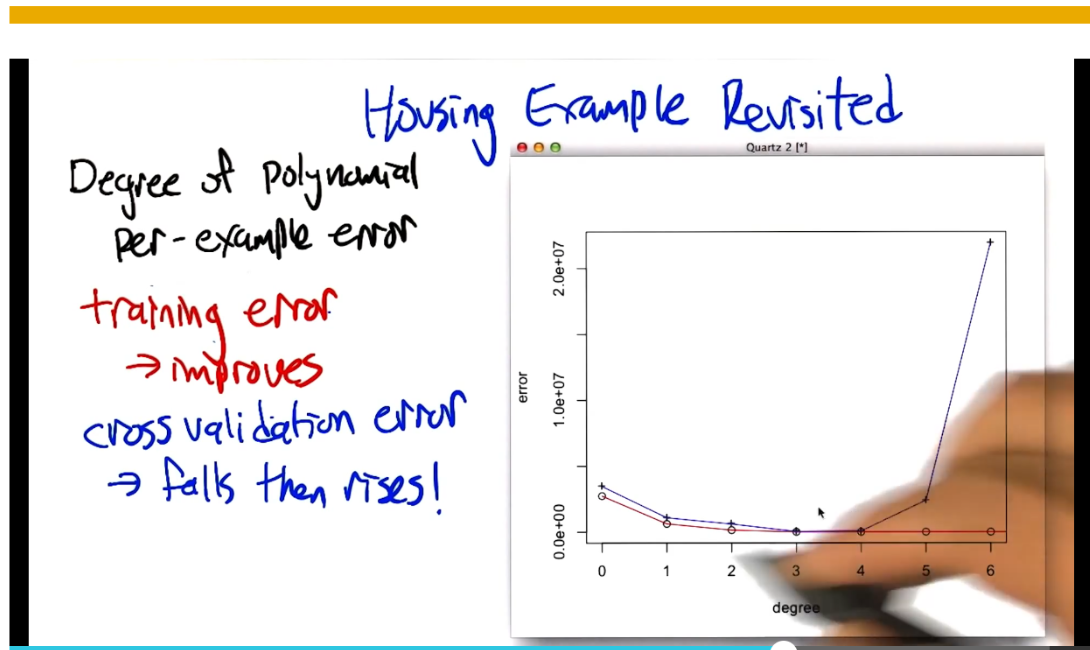 Housing Example Revisited
Degree of Polynomial
Per-example error
training error
→ improves
cross validation error
→ falls then rises!
Quartz 2 [*]
error
2.0e+07
1.0e+07
0.0e+00
0 1 2 3 4 5 6
degree